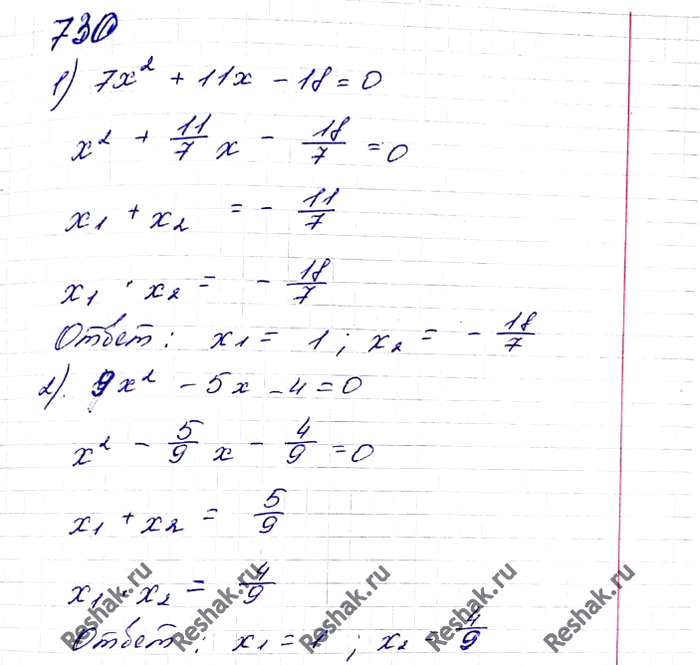 730
1) 7x² + 11x - 18 = 0
x² + 11/7 x - 18/7 = 0
x₁ + x₂ = - 11/7
x₁ · x₂ = - 18/7
Ответ: x₁ = 1; x₂ = - 18/7
2). 9x² - 5x - 4 = 0
x² - 5/9 x - 4/9 = 0
x₁ + x₂ = 5/9
x₁ · x₂ = 4/9
Ответ: x₁ = 1; x₂ = 4/9
Reshak.ru Reshak.ru Reshak.ru Reshak.ru Reshak.ru